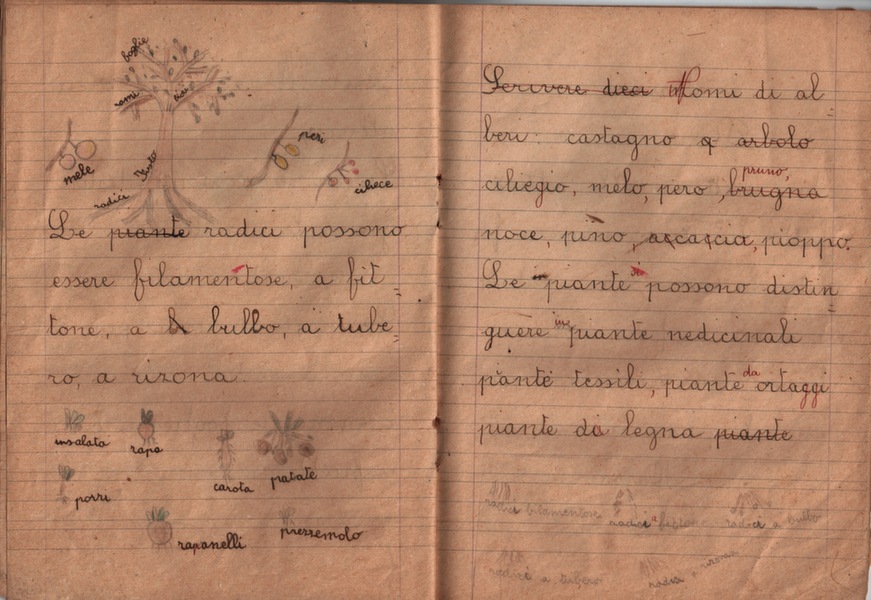 foglie
rami
mele
peri
ciliece
radici
Le piante radici possono
essere filamentose, a fit
tone, a b bulbo, a tube
ro, a rizona
insalata
rapa
carota
patate
porri
rapanelli
prezzemolo
Scrivere dieci Nomi di al
beri: castagno e arbolo
pruno,
ciliegio, melo, pero, brugna
noce, pino, accaccia, pioppo.
Le piante si possono distin
guere in piante nedicinali
pante tessili, piante da ortaggi
piante da legna piante
radici filamentose
radici a fittone
radici a bulbo
radici a tubero
radici a rizona